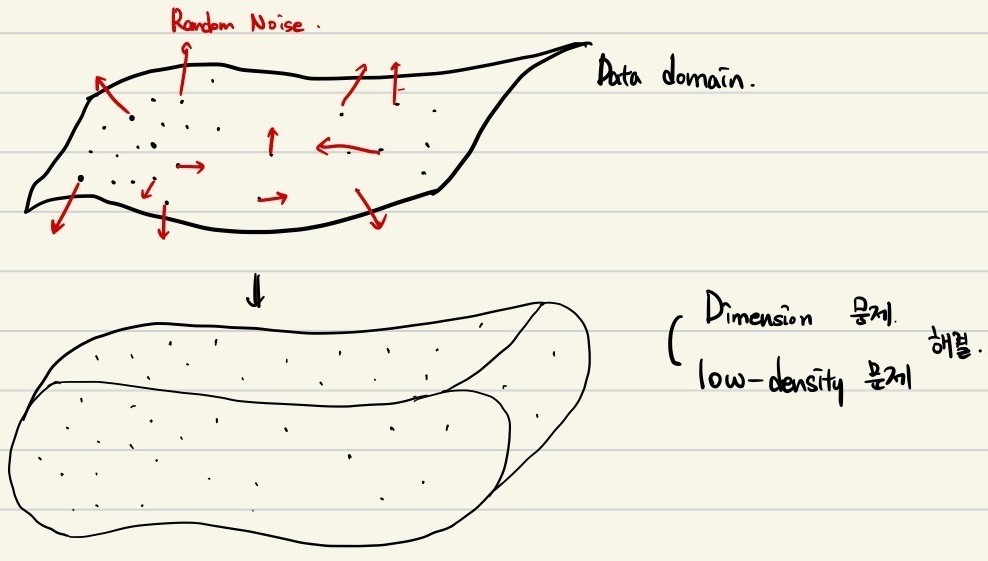 Random Noise.
Data domain.
Dimension 문제.
해결.
low-density 문제